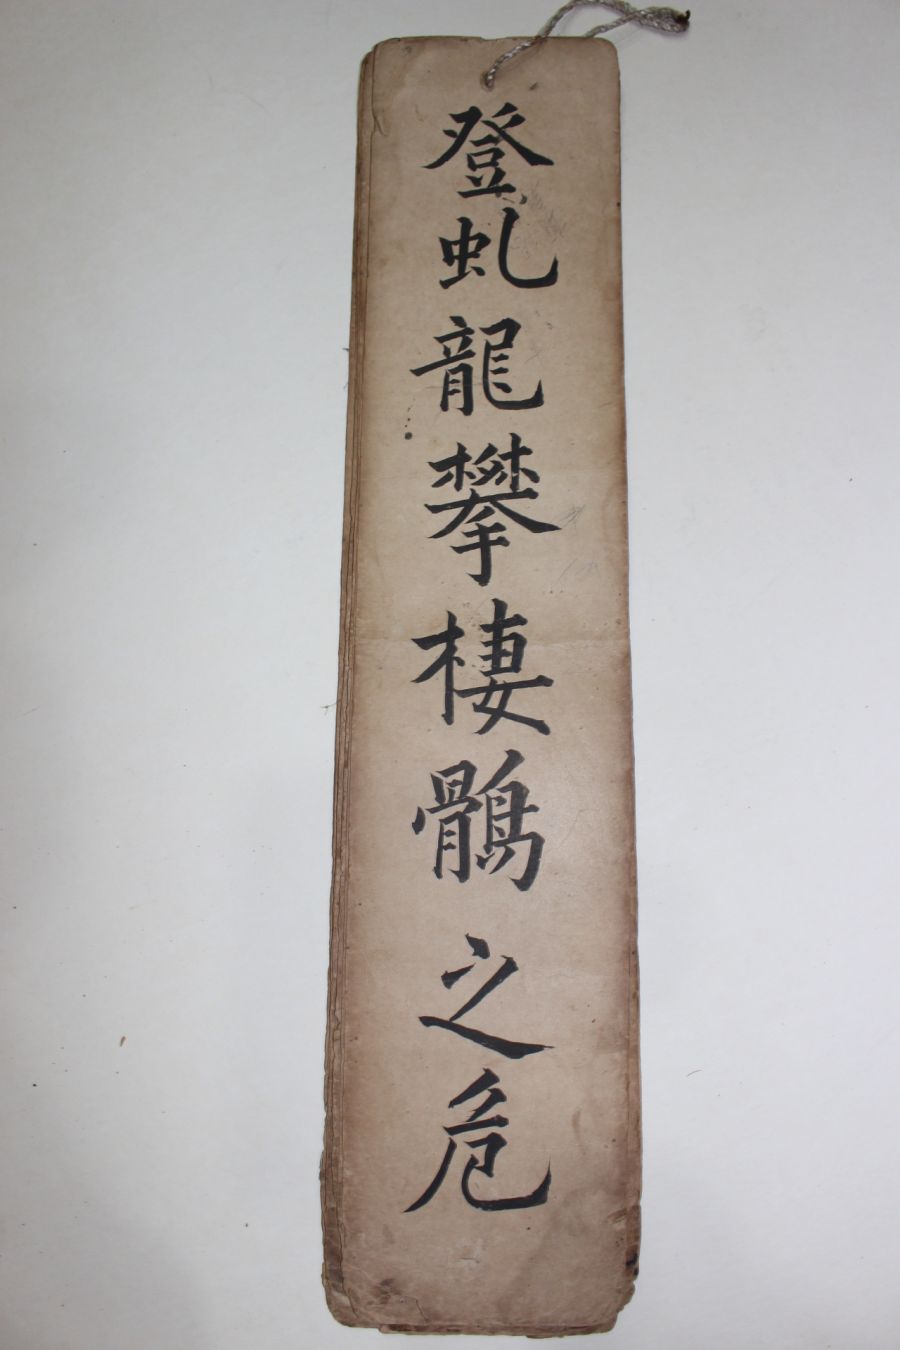 登虬龍攀棲鶻之危